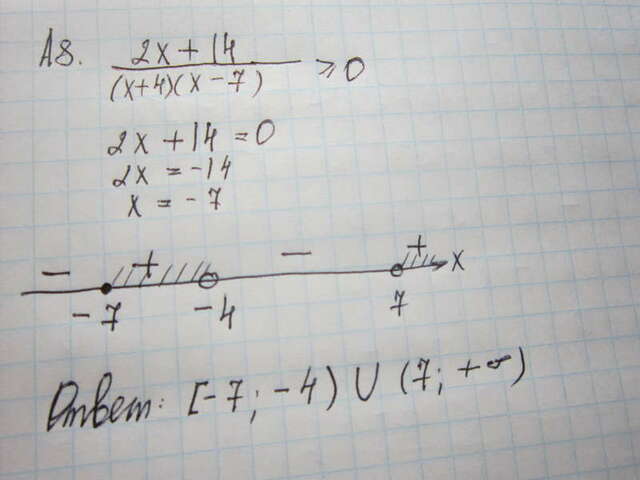 A8. (2x + 14)/((x+4)(x-7)) ⩾ 0
2x + 14 = 0
2x = -14
x = -7
- + - + x
-7 -4 7
Ответ: [-7; -4) ∪ (7; +∞)